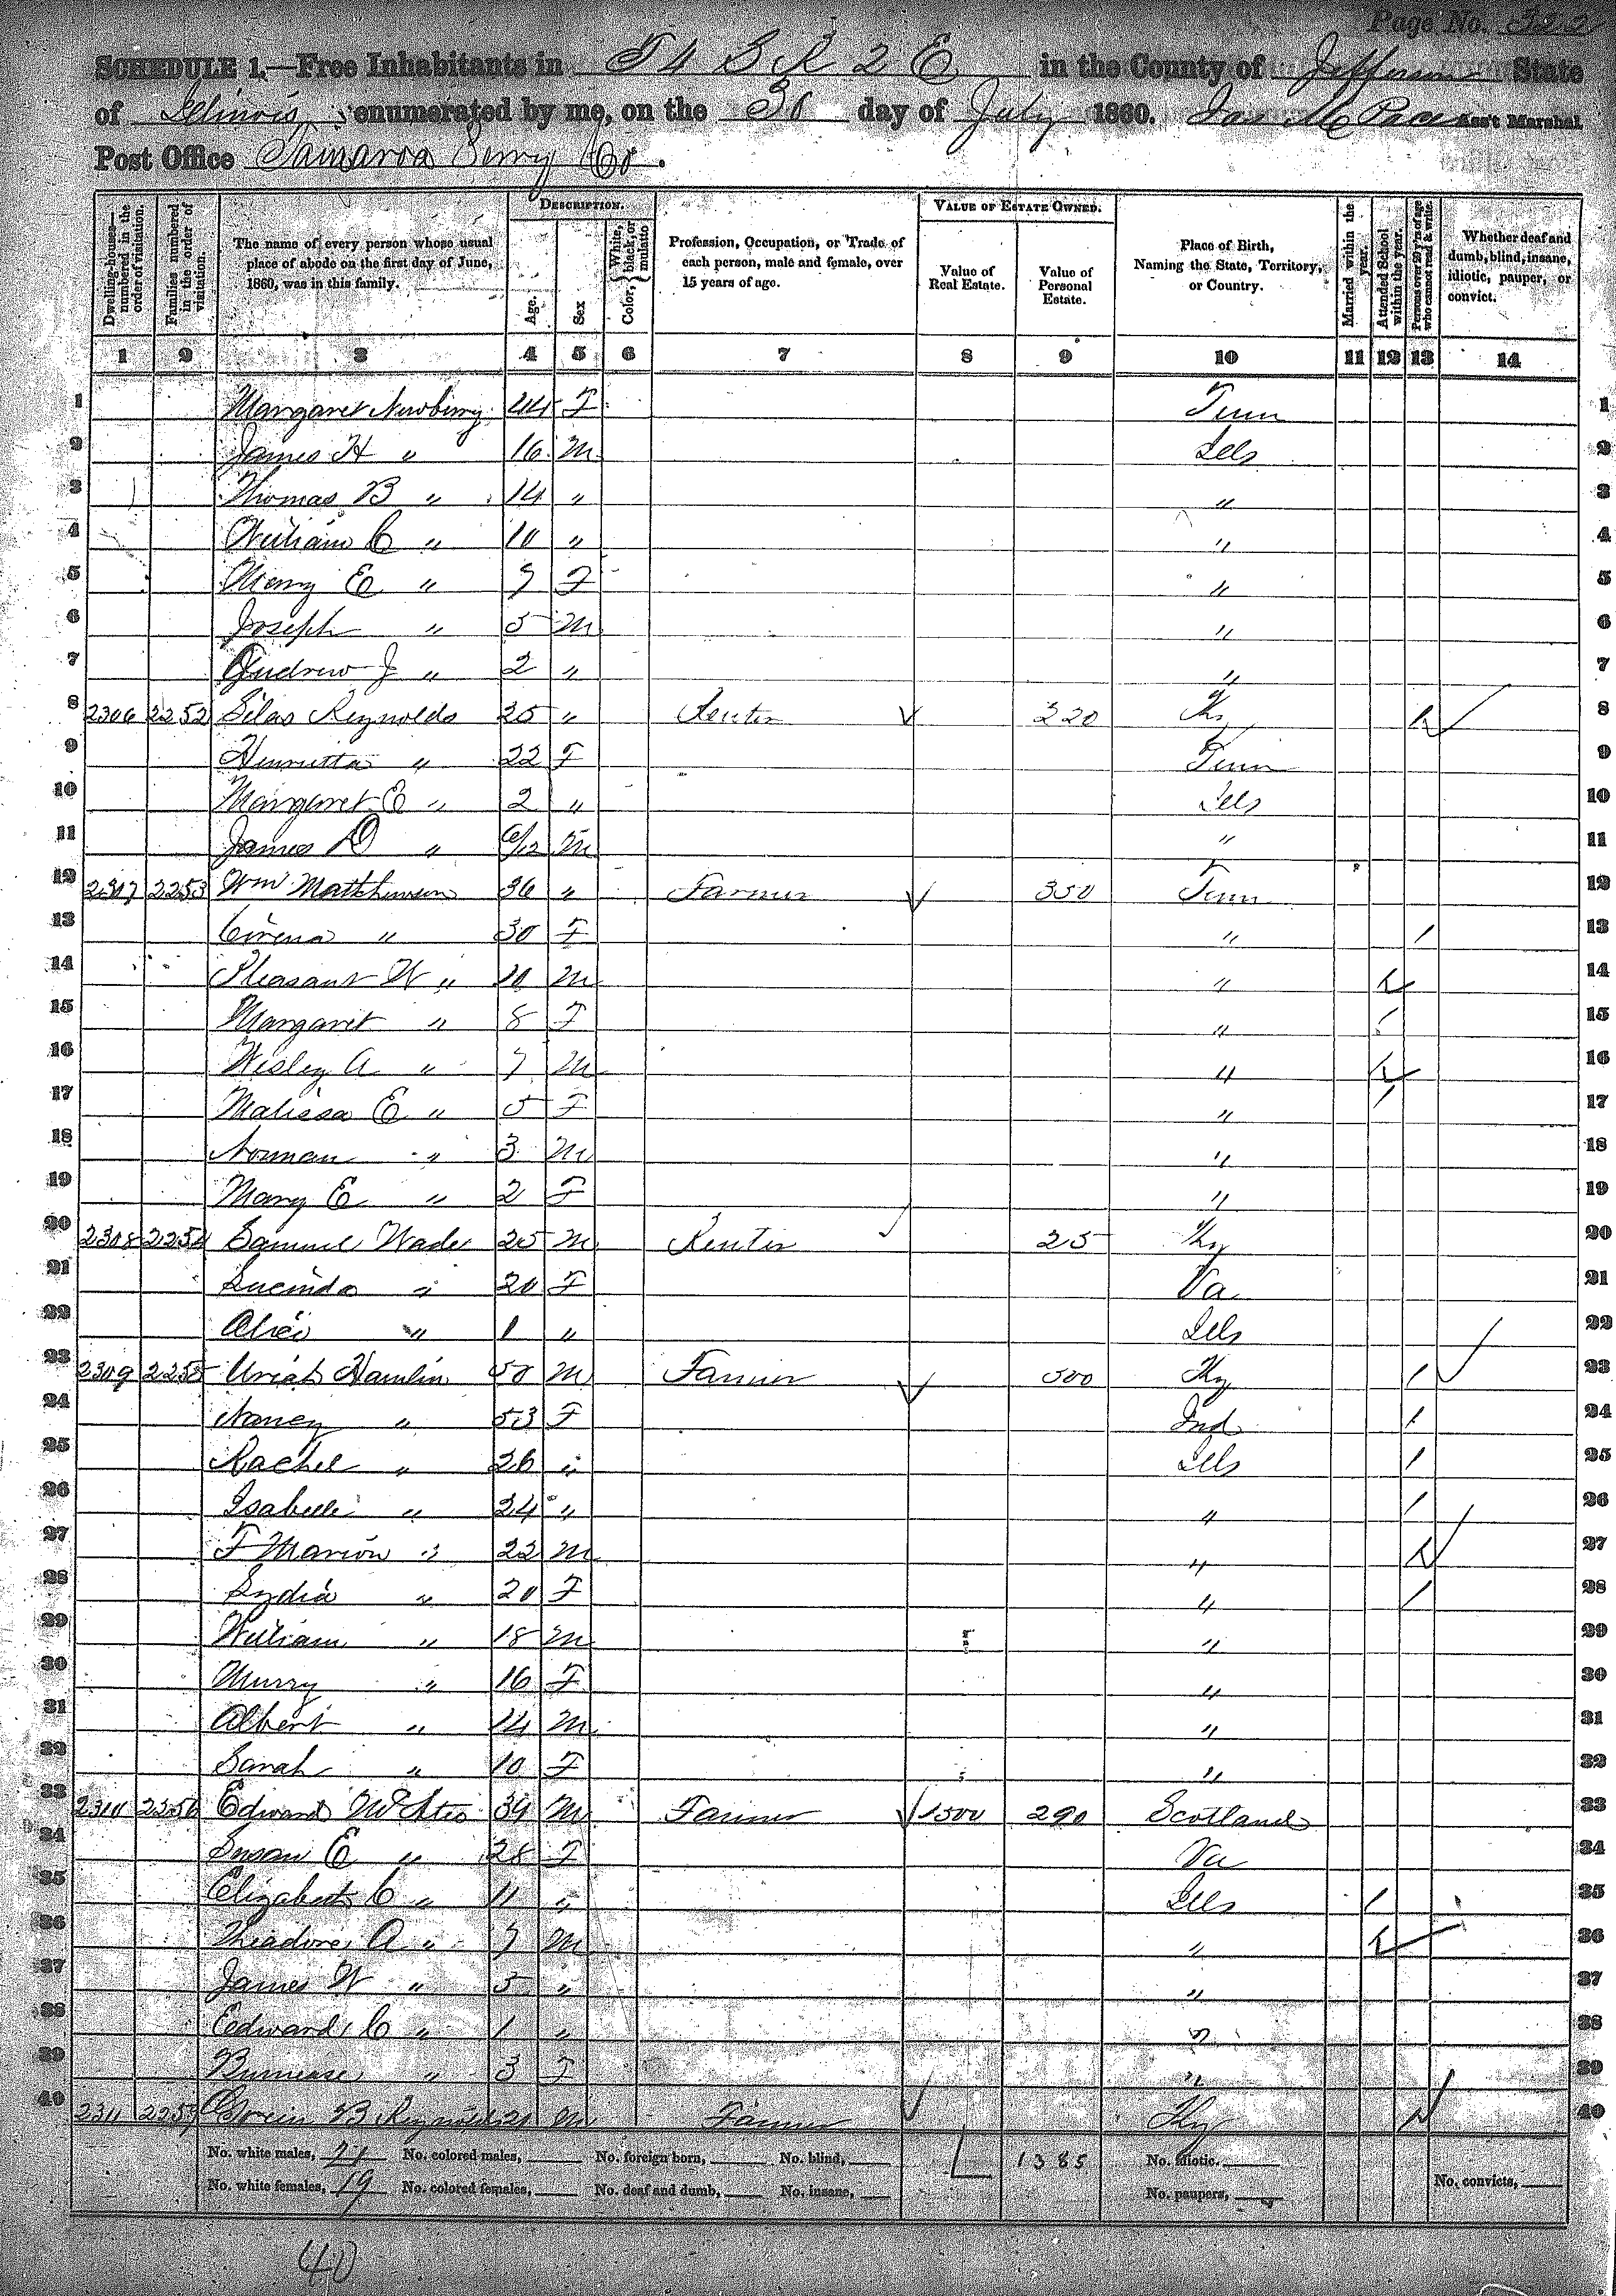 Page No.
SCHEDULE 1.—Free Inhabitants in T 4 S R 2 E in the County of Jefferson State
of Illinois enumerated by me, on the 30 day of July 1860. Ass't Marshal
Post Office Tamaroa Perry Co.
DESCRIPTION. VALUE OF ESTATE OWNED.
Dwelling-houses—numbered in the order of visitation. Families numbered in the order of visitation. The name of every person whose usual place of abode on the first day of June, 1860, was in this family. Age. Sex Color, { White, black, or mulatto Profession, Occupation, or Trade of each person, male and female, over 15 years of age. Value of Real Estate. Value of Personal Estate. Place of Birth, Naming the State, Territory, or Country. Married within the year. Attended School within the year. Persons over 20 y'rs of age who cannot read & write. Whether deaf and dumb, blind, insane, idiotic, pauper, or convict.
1 2 3 4 5 6 7 8 9 10 11 12 13 14
1 Margaret Newberry 44 F Tenn 1
2 James H " 16 M Ills 2
3 Thomas B " 14 " " 3
4 William C " 10 " " 4
5 Mary E " 7 F " 5
6 Joseph " 5 M " 6
7 Andrew J " 2 " " 7
8 2306 2252 Silas Reynolds 25 " Renter 220 Ky 1 8
9 Henrietta " 22 F Tenn 9
10 Margaret E " 2 " Ills 10
11 James D " 6/12 M " 11
12 2307 2253 Wm 36 " Farmer 350 Tenn 12
13 " 30 F " / 13
14 Pleasant W " 10 M " / 14
15 Margaret " 8 F " / 15
16 Wesley A " 7 M " / 16
17 Malissa E " 5 F " / 17
18 Norman " 3 M " 18
19 Mary E " 2 F " 19
20 2308 2254 Samuel Wade 25 M Renter 25 Ky 20
21 Lucinda " 20 F Va 21
22 Alice " 1 " Ills 22
23 2309 2255 Uriah Hamlin 50 M Farmer 500 Ky / 23
24 Nancy " 53 F Ind / 24
25 Rachel " 26 " Ills / 25
26 Isabelle " 24 " " / 26
27 F Marion " 22 M " / 27
28 Lydia " 20 F " / 28
29 William " 18 M " 29
30 Murry " 16 F " 30
31 Albert " 14 M " 31
32 Sarah " 10 F " 32
33 2310 2256 Edward 39 M Farmer 1500 290 Scotland 33
34 Susan E " 28 F Va 34
35 Elizabeth C " 11 " Ills / 35
36 Theadore A " 7 M " / 36
37 James W " 5 " " 37
38 Eedward C " 1 " " 38
39 " 3 F " 39
40 2311 2257 B Reynolds 21 M Farmer Ky / 40
No. white males, 21 No. colored males, No. foreign born, No. blind, 1385 No. idiotic.
No. white females, 19 No. colored females, No. deaf and dumb, No. insane, No. paupers, No. convicts,
40